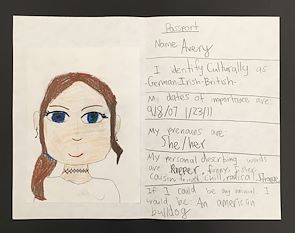 Passport
Name Avery
I identify Culturally as
-German-Irish-British-
My dates of importance are
9/8/07 1/23/11
My pronouns are
She/her
My personal describing words
are Rapper, funny, sister,
cousin, chill, radical,
If I could be any animal I
would be: An american
bulldog